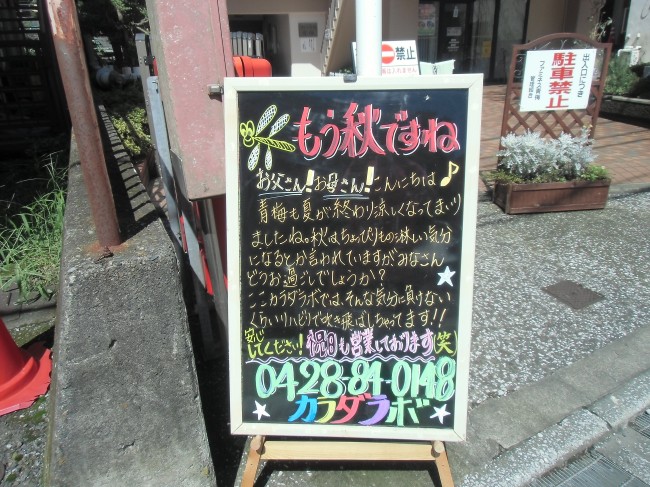 もう秋ですね
お父さん!お母さん!こんにちは♪
青梅も夏が終わり涼しくなってまいり
ましたね。秋はちょっぴりもの淋しい気分
になるとか言われていますがみなさん
どうお過ごしでしょうか?
ここカラダラボでは、そんな気分に負けない
くらいリハビリで吹き飛ばしちゃってます!!
安心してください!祝日も営業しております(笑)
0428-84-0148
カラダラボ
禁止
出入口につき
駐車禁止
ファミネス青梅
管理組合